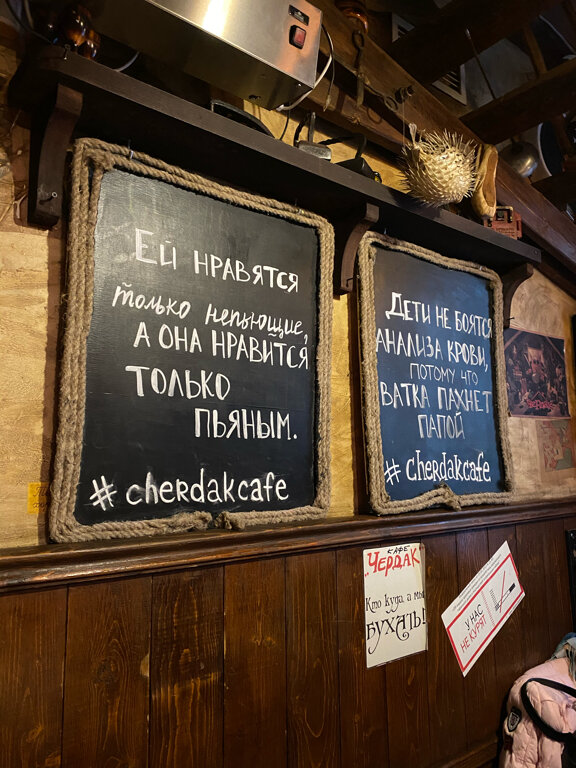 Ей нравятся
только непьющие,
а она нравится
только
пьяным.
#cherdakcafe
Дети не боятся
анализа крови,
потому что
ватка пахнет
папой
#cherdakcafe
кафе
"Чердак
Кто куда а мы
Бухать!
У НАС
НЕ КУРЯТ